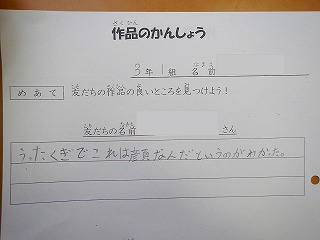 さくひん
作品のかんしょう
3年1組 名前
なまえ
めあて
友だちの作品の良いところを見つけよう！
友だちの名前 さん
うったくぎでこれは
なんだというのがわかった。